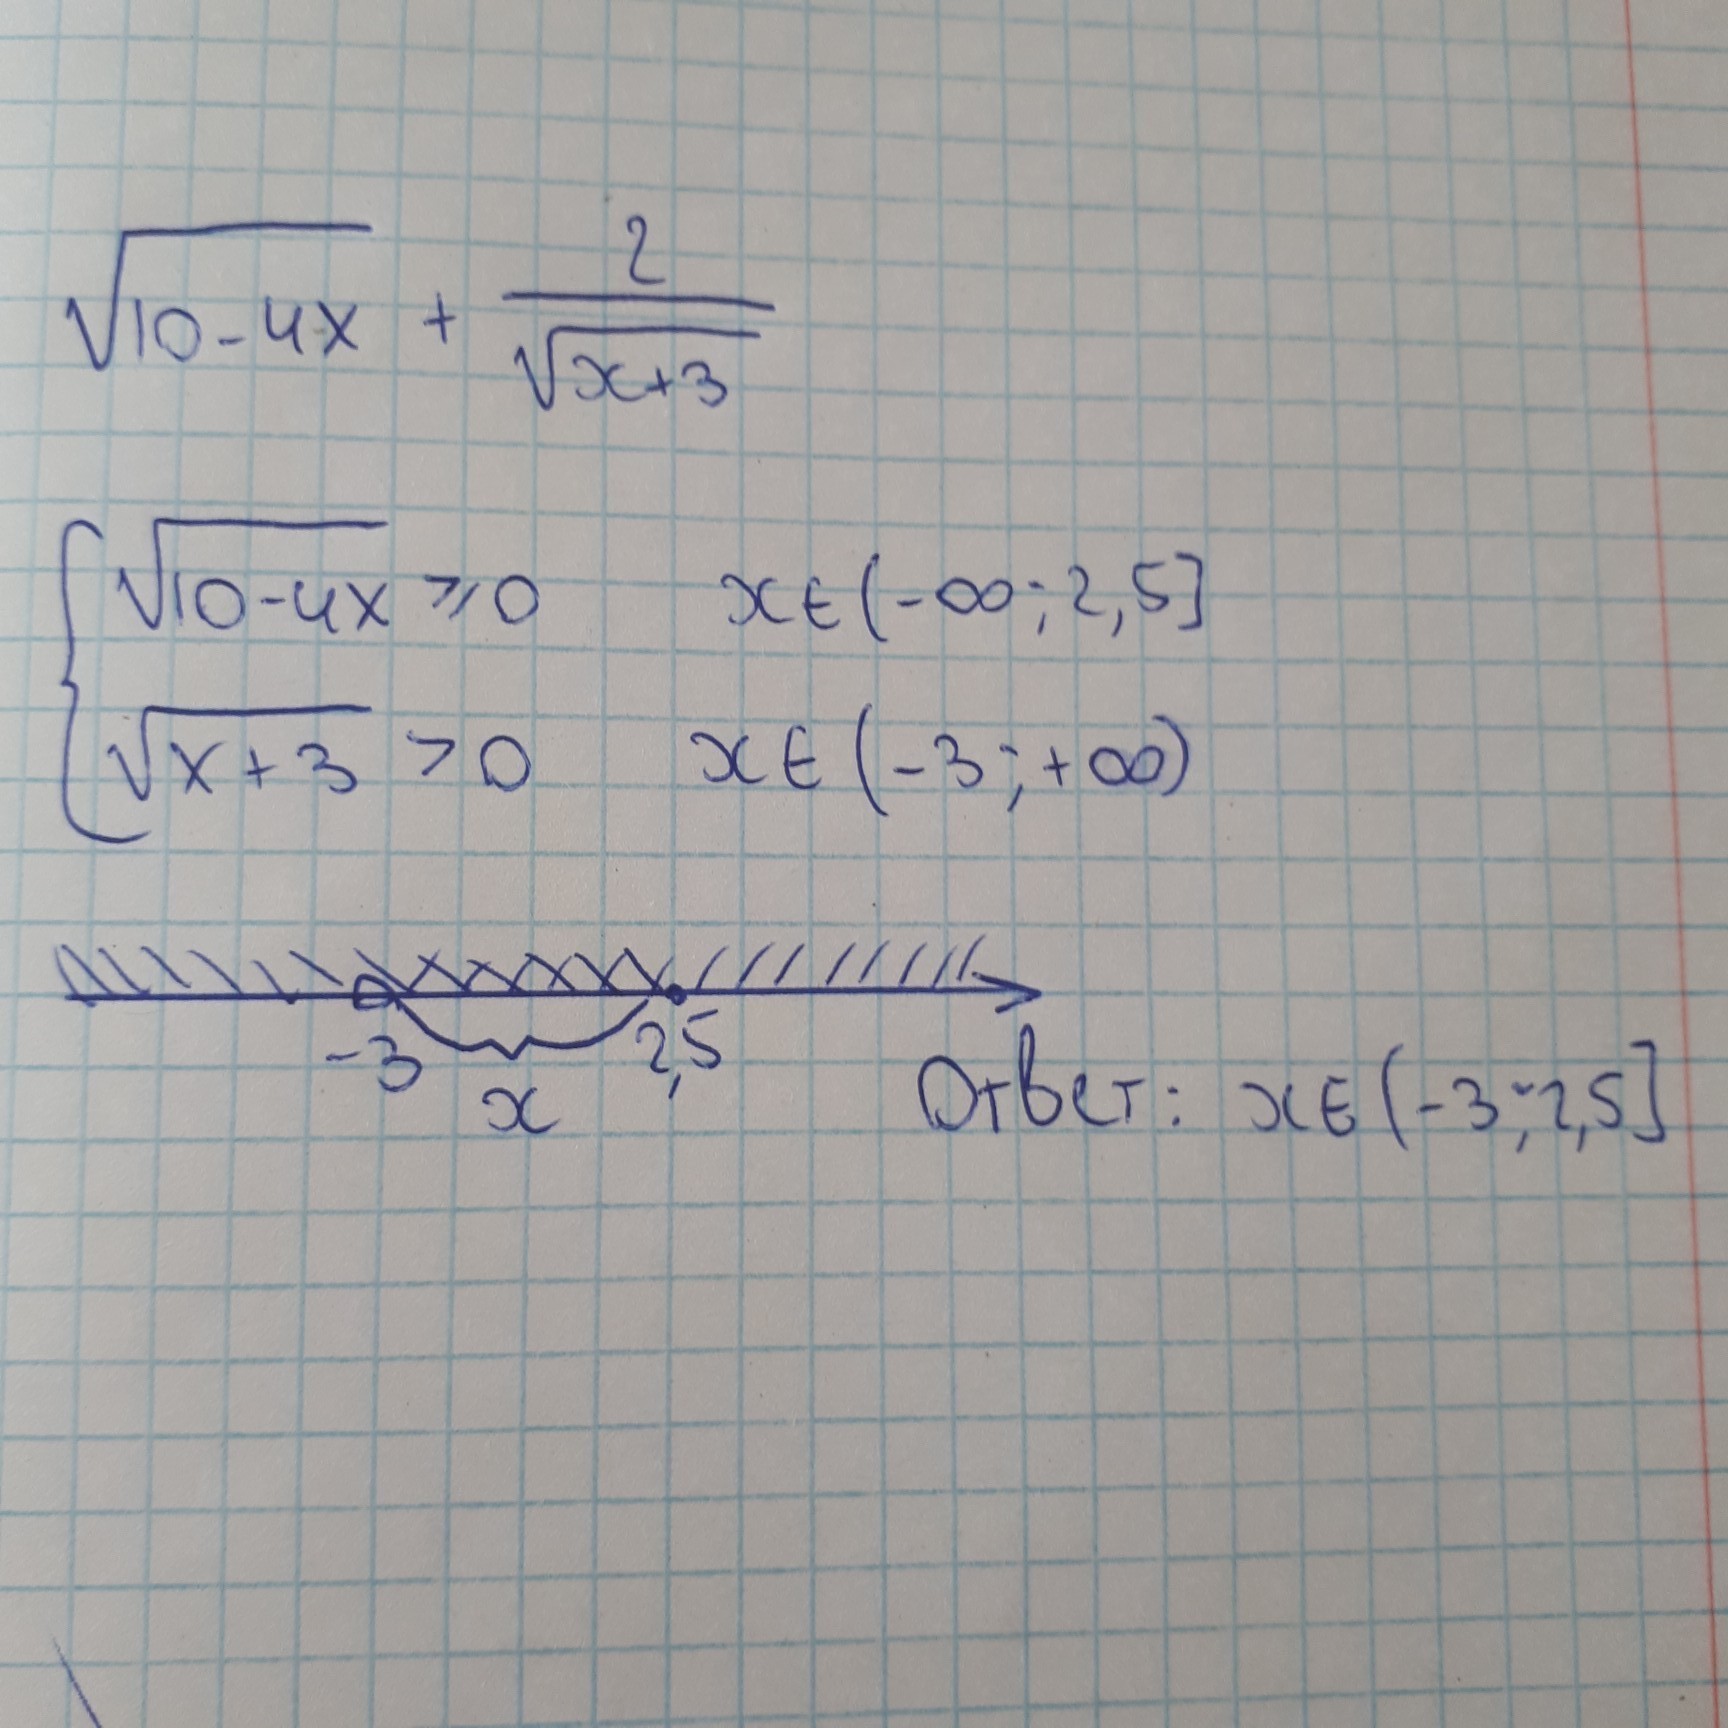 √(10-4x) + 2/√(x+3)
{ √(10-4x) ⩾ 0 x∈(-∞; 2,5]
√(x+3) > 0 x∈(-3; +∞)
-3 2,5
x
Ответ: x∈(-3; 2,5]